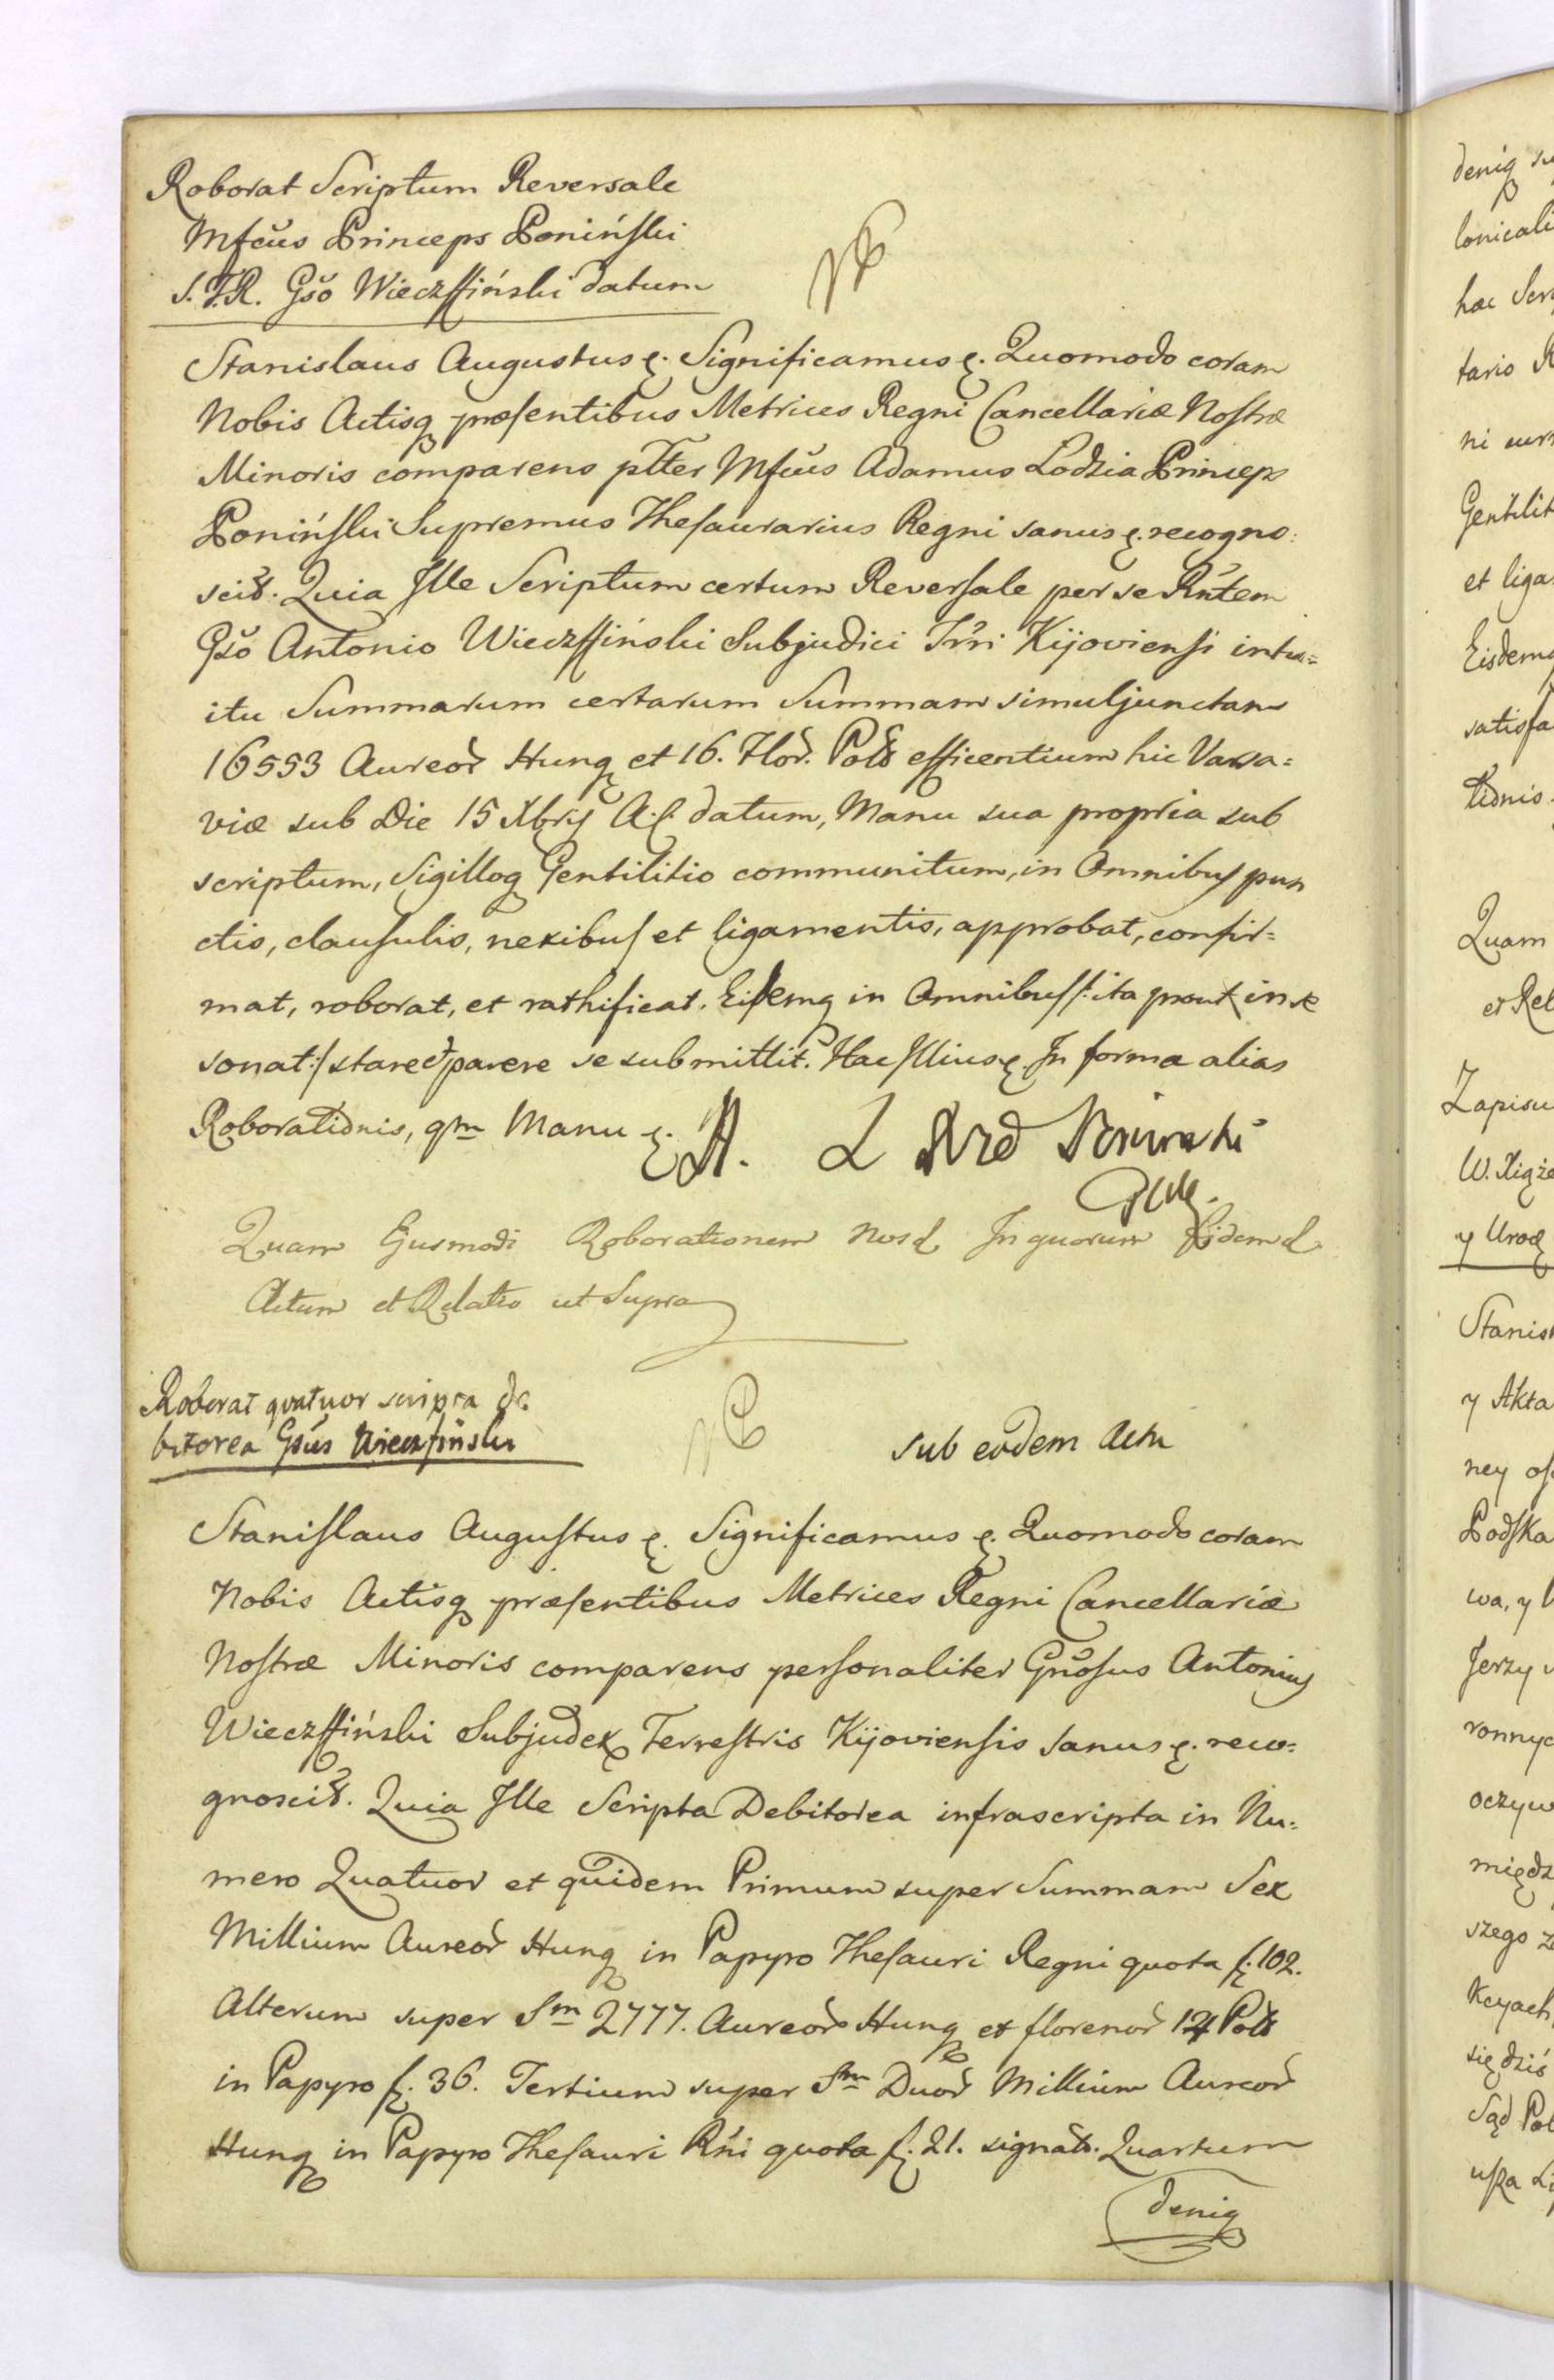 Roborat Scriptum Reversale
Mfcus Princeps Poniński
S.T.R. Gso Wieczffiński datum
Stanislaus Augustus &. Significamus &. Quomodo coram
Nobis Actisq præsentibus Metrices Regni Cancellariæ Nostræ
Minoris comparens pltter Mfcus Adamus Lodzia Princeps
Poniński Supremus Thesaurarius Regni sanus &. recogno:
scit. Quia Ille Scriptum certum Reversale per se Rntem
Gso Antonio Wieczffiński Subjudici Trri Kijoviensi intu=
itu Summarum certarum Summam simul junctam
16553 Aureor Hung et 16. Flor. Pols efficentium hic Varsa=
viæ sub Die 15 Xbris A.C. datum, Manu sua propria sub
scriptum, Sigilloq Gentilitio communitum, in Omnibus pun
ctis, clausulis, nexibus et ligamentis, approbat, confir=
mat, roborat, et rathificat. Eisdemq in Omnibus /: ita prout in se
sonat :/ stare et parere se submittit. Hac Illius &. In forma alias
Roborationis, qm Manu &. A. L Poninski
Quam Ejusmodi Roborationem Nos & In quorum Fidem &
Actum et Relatio ut Supra
Roborat quatuor scripta de
bitorea Gsus Wieczfinski
sub eodem Actu
Stanislaus Augustus &. Significamus &. Quomodo coram
Nobis Actisq præsentibus Metrices Regni Cancellariæ
Nostræ Minoris comparens personaliter Gnosus Antonius
Wieczffiński Subjudex Terrestris Kijoviensis sanus &. reco=
gnoscit. Quia Ille Scripta Debitorea infrascripta in Nu=
mero Quatuor et quidem Primum super Summam Sex
Millium Aureor Hung in Papyro Thesauri Regni quota f. 102.
Alterum super Sm 2777. Aureor Hung et florenor 14 Pols
in Papyro f. 36. Tertium super Sm Duor Millium Aureor
Hung in Papyro Thesauri Rni quota f. 21. signato. Quartum
deniq
lonicali
hac
tario
Gentilit
et liga
Eisdemq
satisfa
Quam
et Rel
Zapisu
W. Xiąże
y Urodz
Stanis
y Akta
ney
Podska
wa, y
Jerzy
ronnyc
oczyw
międz
szego
kcyach
się dziś
Sąd Pol